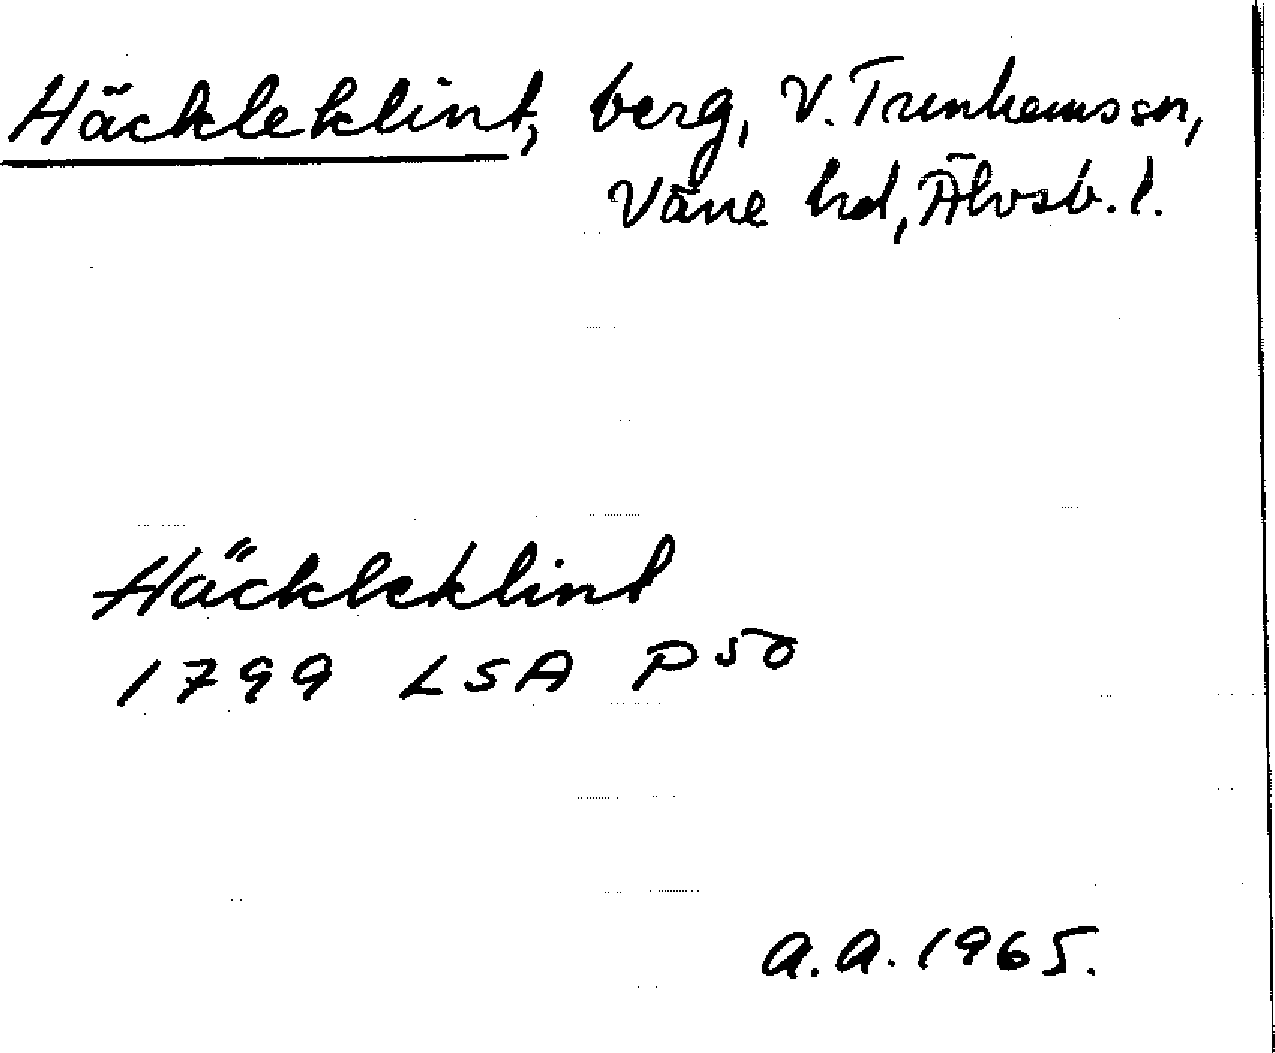 Häckleklint, berg, V. Tunhems sn,
Väne hd, Älvsb. l.
Häckleklint
1799 LSA P 50
a.a. 1965.